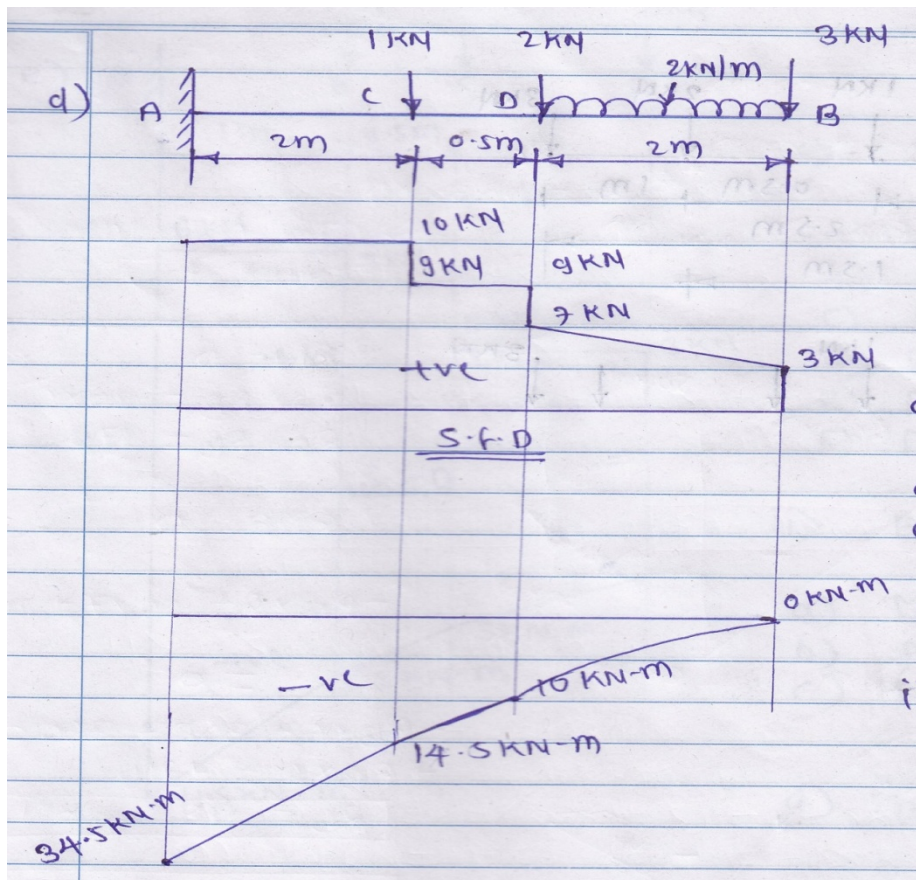 1 KN 2 KN 3 KN
2KN/m
d) A C D B
2m 0.5m 2m
10 KN
9 KN 9 KN
7 KN
+ve 3 KN
S.F.D
0 KN-m
-ve 10 KN-m
14.5 KN-m
34.5 KN-m